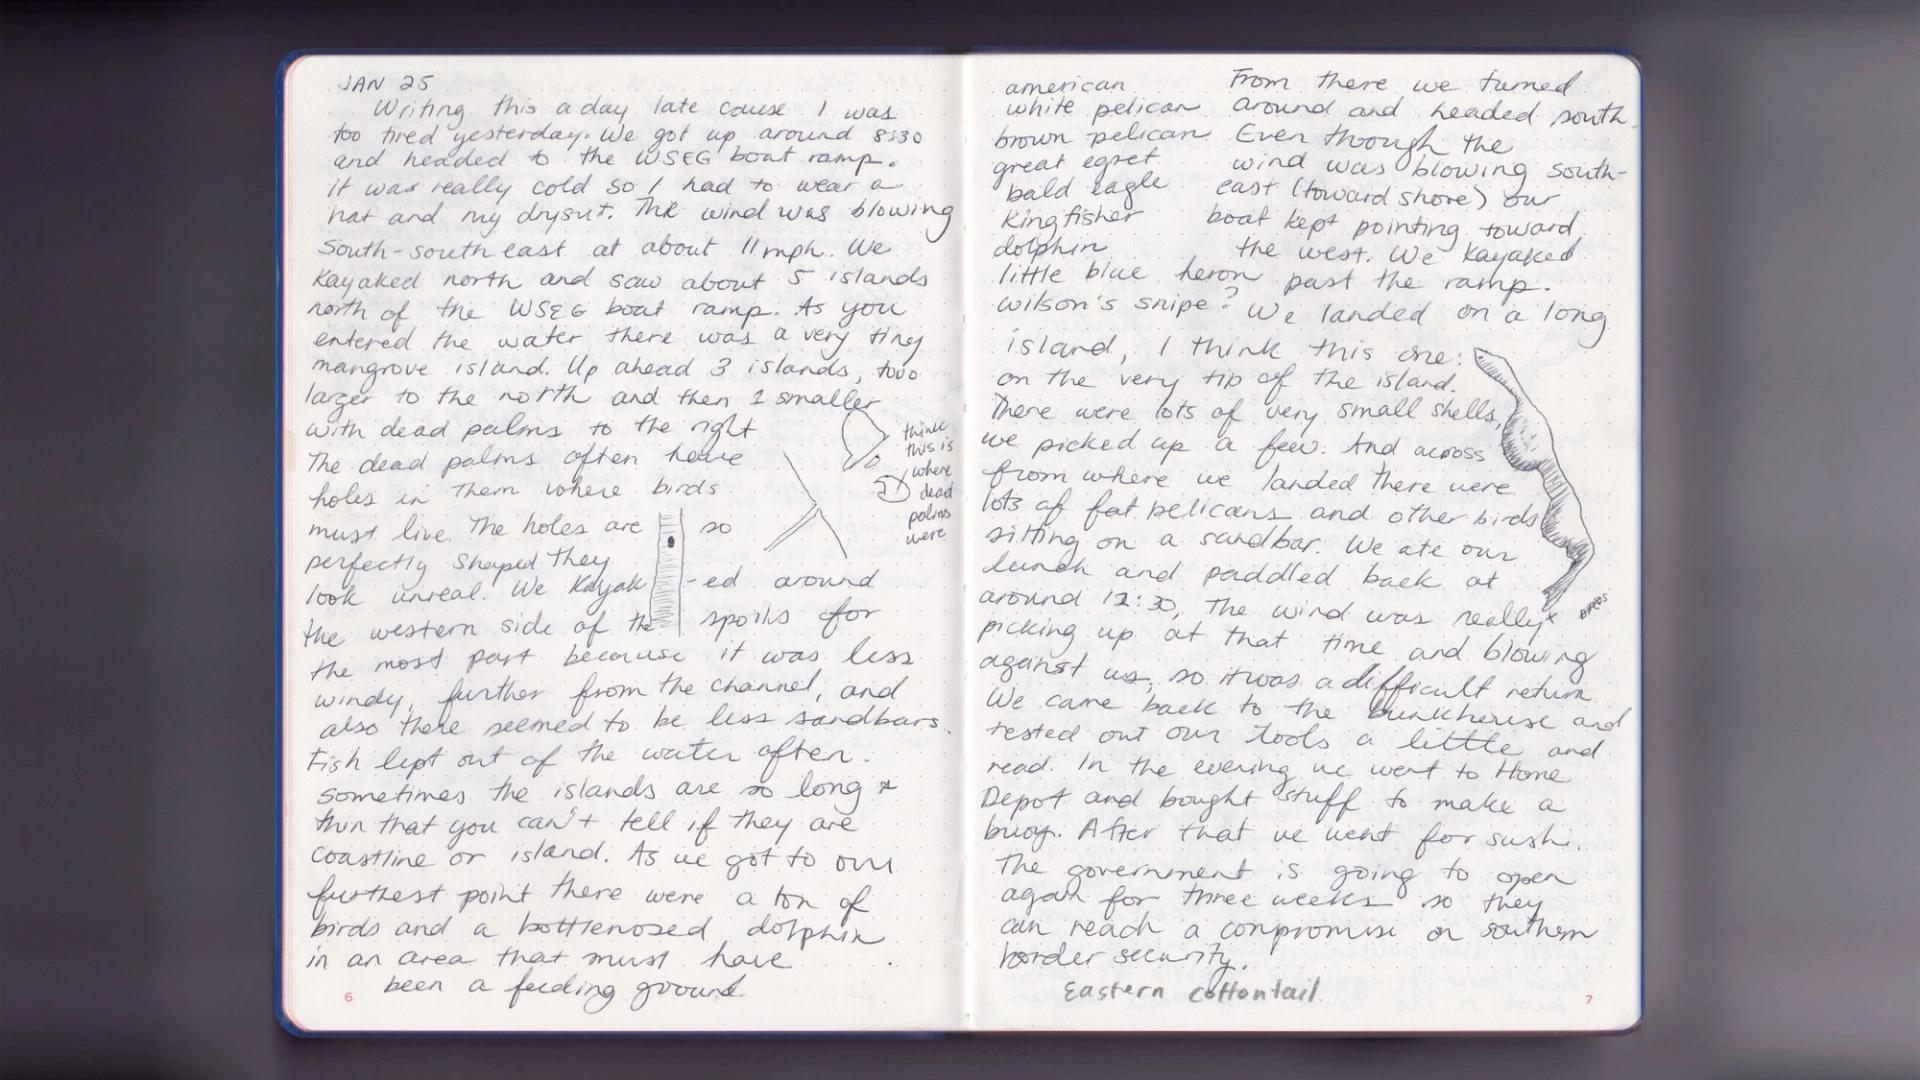 JAN 25
Writing this a day late cause I was
too tired yesterday. We got up around 8:30
and headed to the WSEG boat ramp.
It was really cold so I had to wear a
hat and my drysuit. The wind was blowing
South-south east at about 11 mph. We
kayaked north and saw about 5 islands
north of the WSEG boat ramp. As you
entered the water there was a very tiny
mangrove island. Up ahead 3 islands, two
larger to the north and then 1 smaller
with dead palms to the right
The dead palms often have
holes in them where birds
must live. The holes are so
perfectly shaped they
look unreal. We kayak-ed around
the western side of the spoils for
the most part because it was less
windy, further from the channel, and
also there seemed to be less sandbars.
Fish lept out of the water often.
Sometimes the islands are so long &
thin that you can't tell if they are
coastline or island. As we got to our
furthest point there were a ton of
birds and a bottlenosed dolphin
in an area that must have
been a feeding ground.
think
this is
where
dead
palms
were
6
american
white pelican
brown pelican
great egret
bald eagle
Kingfisher
dolphin
little blue heron
wilson's snipe?
From there we turned
around and headed south.
Even though the
wind was blowing south-
east (toward shore) our
boat kept pointing toward
the west. We kayaked
past the ramp.
We landed on a long
island, I think this one:
on the very tip of the island.
There were lots of very small shells,
we picked up a few. And across
from where we landed there were
lots of fat pelicans and other birds
sitting on a sandbar. We ate our
lunch and paddled back at
around 12:30, The wind was really
picking up at that time and blowing
against us, so it was a difficult return
We came back to the bunkhouse and
tested out our tools a little and
read. In the evening we went to Home
Depot and bought stuff to make a
buoy. After that we went for sushi.
The government is going to open
again for three weeks so they
can reach a compromise on southern
border security.
Eastern cottontail
x birds
7